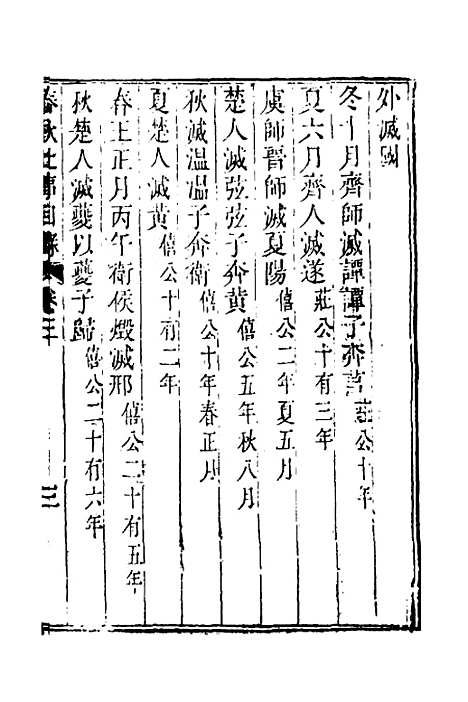 外滅國
冬十月齊師滅譚譚子奔莒 莊公十年
夏六月齊人滅遂 莊公十有三年
虞師晉師滅夏陽 僖公二年夏五月
楚人滅弦弦子奔黄 僖公五年秋八月
秋滅温温子奔衛 僖公十年春正月
夏楚人滅黄 僖公十有二年
春王正月丙午衛侯燬滅邢 僖公二十有五年
秋楚人滅夔以夔子歸 僖公二十有六年
春秋比事目錄 卷三 三